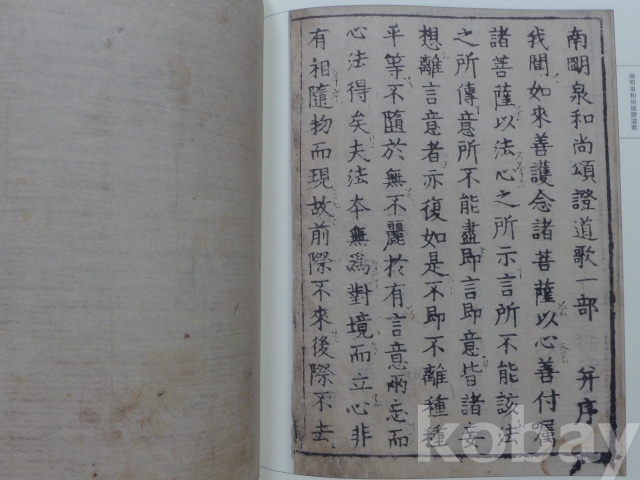 南明泉和尚頌證道歌一部 并序
我聞如來善護念諸菩薩以心善付囑
諸菩薩以法心之所示言所不能該法
之所傳意所不能盡即言即意皆諸妄
想離言意者亦復如是不即不離種種
平等不隨於無不麗於有言意兩忘而
心法得矣夫法本無爲對境而立心非
有相隨物而現故前際不來後際不去
南明泉和尚頌證道歌
kobay